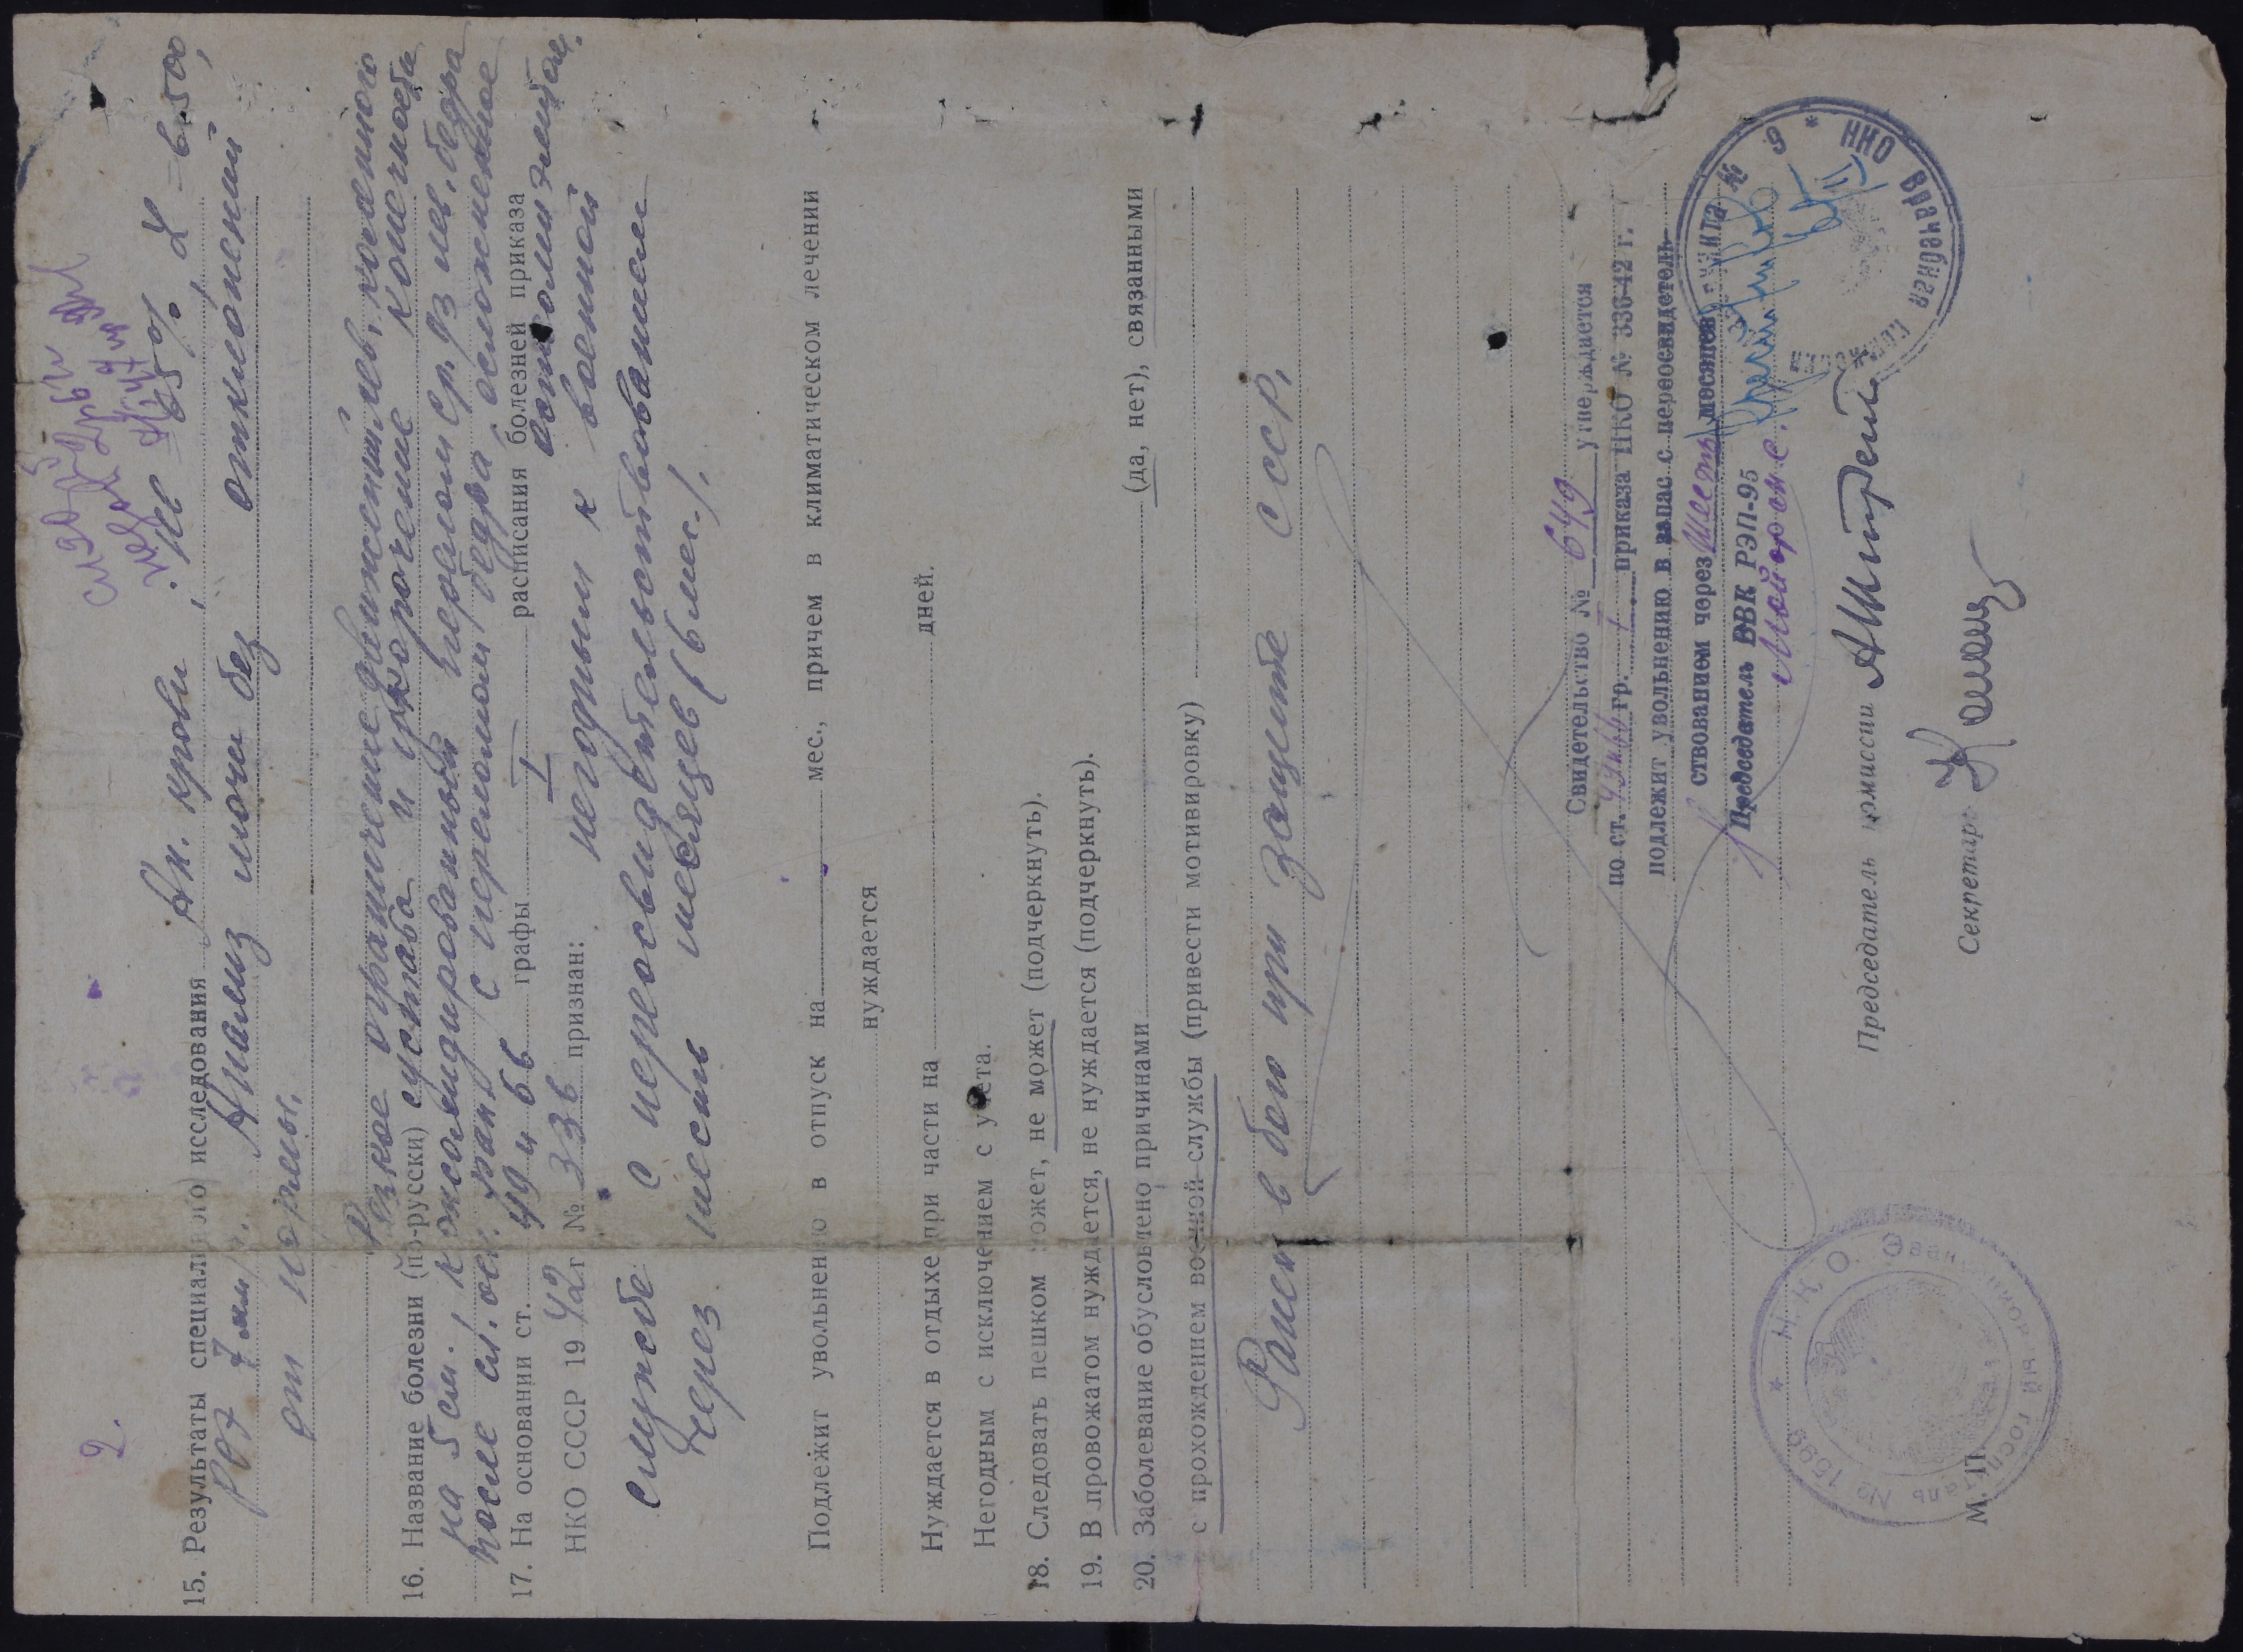 2.
15. Результаты специального) исследования Ан. крови: Hb 65%, L = 6.500,
РОЭ 7 мм/ч. Анализ мочи без отклонений
от нормы.
Резкое ограничение движений лев. коленного
16. Название болезни (по-русски) сустава и укорочение конечности
на 5 см. консолидированный перелом ср. 1/3 лев. бедра
после сл. оск. ран. с переломом бедра, осложненное
17. На основании ст. 49 и 66 графы I расписания болезней приказа остеомиэлитом.
НКО СССР 1942 г № 336 признан: негодным к военной
службе с переосвидетельствованием
через шесть месяцев (6 мес.).
Подлежит увольнению в отпуск на мес., причем в климатическом лечении
нуждается
Нуждается в отдыхе при части на дней.
Негодным с исключением с учета.
18. Следовать пешком может, не может (подчеркнуть).
19. В провожатом нуждается, не нуждается (подчеркнуть).
20. Заболевание обусловлено причинами (да, нет), связанными
с прохождением военной службы (привести мотивировку)
Ранен в бою при защите СССР.
Свидетельство № 649 утверждается
по ст. гр. I приказа НКО № 336-42 г.
подлежит увольнению в запас с переосвидетель-
ствованием через шесть месяцев
Председатель ВВК РЭП-95
Председатель комиссии
Секретарь
М. П.
* Н.К.О. * Эвакуационный госпиталь № 1598
Врачебная